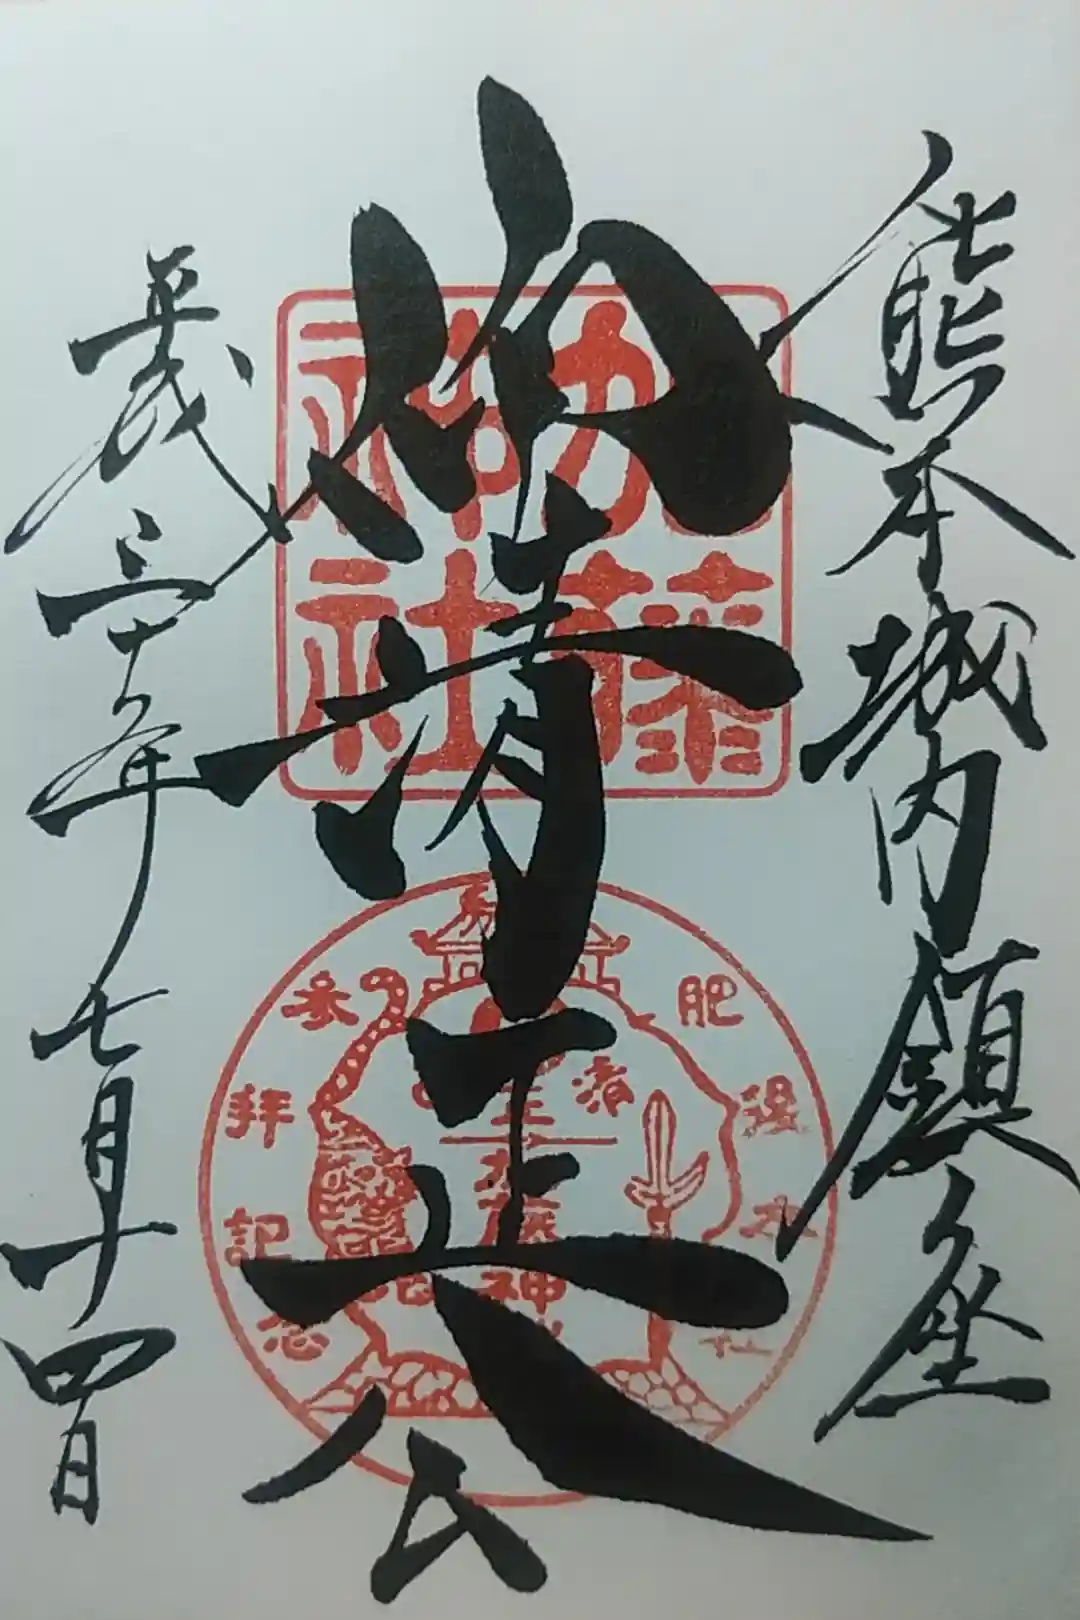 熊本城内鎮座
仰清正公
平成三十年七月十四日
加藤
神社
肥後本
社
参拝記念
清
加藤神社